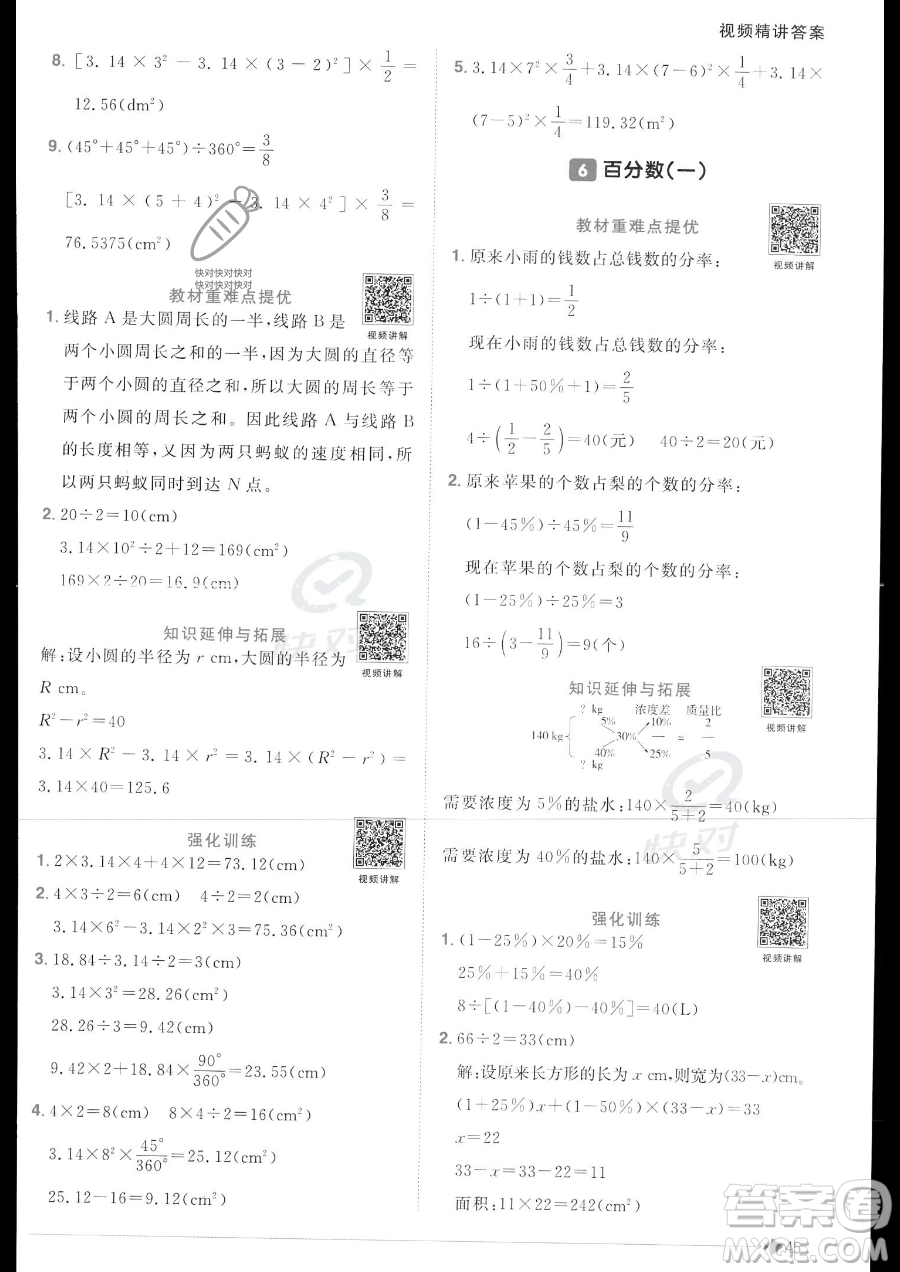 视频精讲答案
8. [3.14×3²-3.14×(3-2)²]×1/2=
12.56(dm²)
9. (45°+45°+45°)÷360°=3/8
[3.14×(5+4)²-3.14×4²]×3/8=
76.5375(cm²)
快对快对快对
快对快对快对
教材重难点提优
视频讲解
1. 线路 A 是大圆周长的一半,线路 B 是
两个小圆周长之和的一半,因为大圆的直径等
于两个小圆的直径之和,所以大圆的周长等于
两个小圆的周长之和。因此线路 A 与线路 B
的长度相等,又因为两只蚂蚁的速度相同,所
以两只蚂蚁同时到达 N 点。
2. 20÷2=10(cm)
3.14×10²÷2+12=169(cm²)
169×2÷20=16.9(cm)
知识延伸与拓展
视频讲解
解:设小圆的半径为 r cm,大圆的半径为
R cm。
R²-r²=40
3.14×R²-3.14×r²=3.14×(R²-r²)=
3.14×40=125.6
强化训练
视频讲解
1. 2×3.14×4+4×12=73.12(cm)
2. 4×3÷2=6(cm) 4÷2=2(cm)
3.14×6²-3.14×2²×3=75.36(cm²)
3. 18.84÷3.14÷2=3(cm)
3.14×3²=28.26(cm²)
28.26÷3=9.42(cm)
9.42×2+18.84×90°/360°=23.55(cm)
4. 4×2=8(cm) 8×4÷2=16(cm²)
3.14×8²×45°/360°=25.12(cm²)
25.12-16=9.12(cm²)
5. 3.14×7²×3/4+3.14×(7-6)²×1/4+3.14×
(7-5)²×1/4=119.32(m²)
6 百分数(一)
教材重难点提优
视频讲解
1. 原来小雨的钱数占总钱数的分率:
1÷(1+1)=1/2
现在小雨的钱数占总钱数的分率:
1÷(1+50%+1)=2/5
4÷(1/2-2/5)=40(元) 40÷2=20(元)
2. 原来苹果的个数占梨的个数的分率:
(1-45%)÷45%=11/9
现在苹果的个数占梨的个数的分率:
(1-25%)÷25%=3
16÷(3-11/9)=9(个)
知识延伸与拓展
视频讲解
? kg 浓度差 质量比
5% 10% 2
140 kg 30% — = —
40% 25% 5
? kg
需要浓度为 5%的盐水:140×2/(5+2)=40(kg)
需要浓度为 40%的盐水:140×5/(5+2)=100(kg)
强化训练
视频讲解
1. (1-25%)×20%=15%
25%+15%=40%
8÷[(1-40%)-40%]=40(L)
2. 66÷2=33(cm)
解:设原来长方形的长为 x cm,则宽为(33-x)cm。
(1+25%)x+(1+50%)(33-x)=66×2/3
x=22
33-x=33-22=11
面积:11×22=242(cm²)
45
快对
快对
答案圈
MXQE.COM